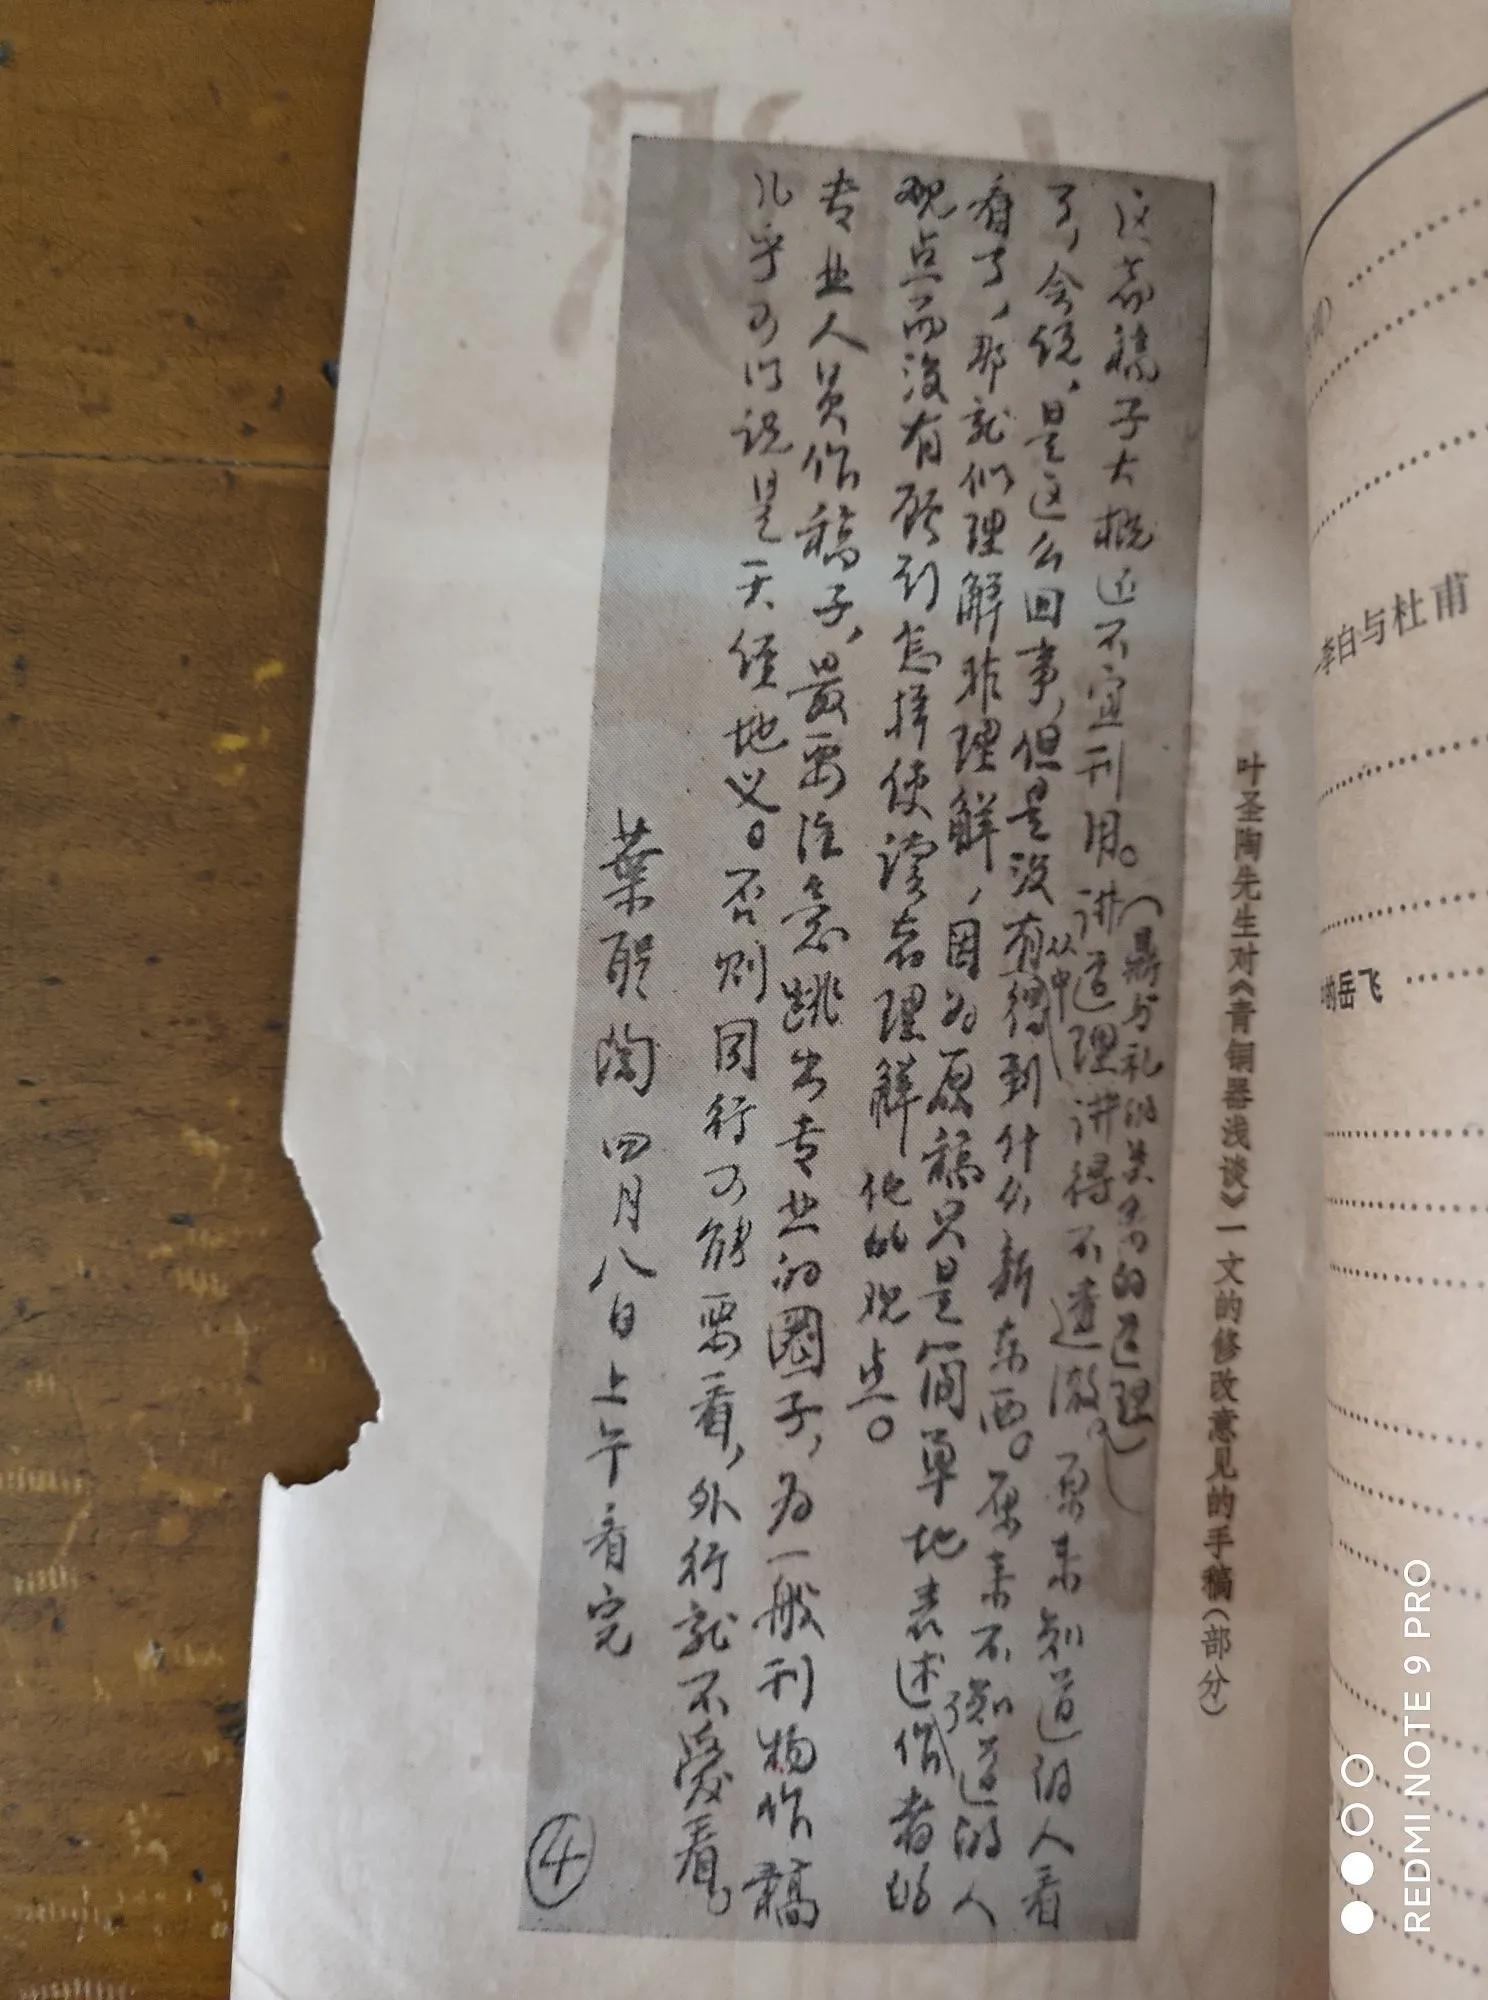 叶圣陶先生对《青铜器浅谈》一文的修改意见的手稿(部分)
这篇稿子大概还不宜刊用。讲道理讲得不透澈。原来知道的人看
(鼎与礼的关系的道理)
了，会说，是这么回事，但是没有从中得到什么新东西。原来不知道的人
看了，那就似理解非理解，因为原稿只是简单地表述作者的
了
观点而没有顾到怎样使读者理解他的观点。
专业人员作稿子，最要注意跳出专业的圈子，为一般刊物作稿
几乎可以说是天经地义。否则同行可能要看，外行就不爱看。
葉聖陶 四月八日上午看完
④
李白与杜甫
的岳飞
REDMI NOTE 9 PRO